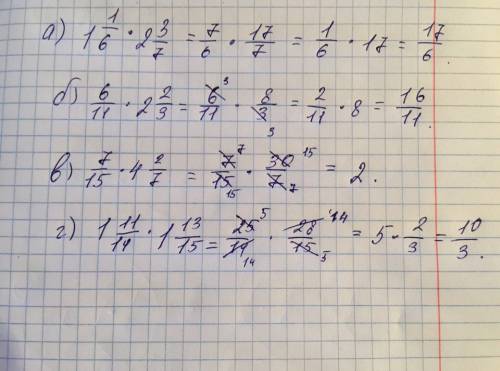 а) 1 1/6 · 2 3/7 = 7/6 · 17/7 = 1/6 · 17 = 17/6.
б) 6/11 · 2 2/3 = 6/11 · 8/3 = 2/11 · 8 = 16/11.
в) 7/15 · 4 2/7 = 7/15 · 30/7 = 2.
г) 1 11/14 · 1 13/15 = 25/14 · 28/15 = 5 · 2/3 = 10/3.